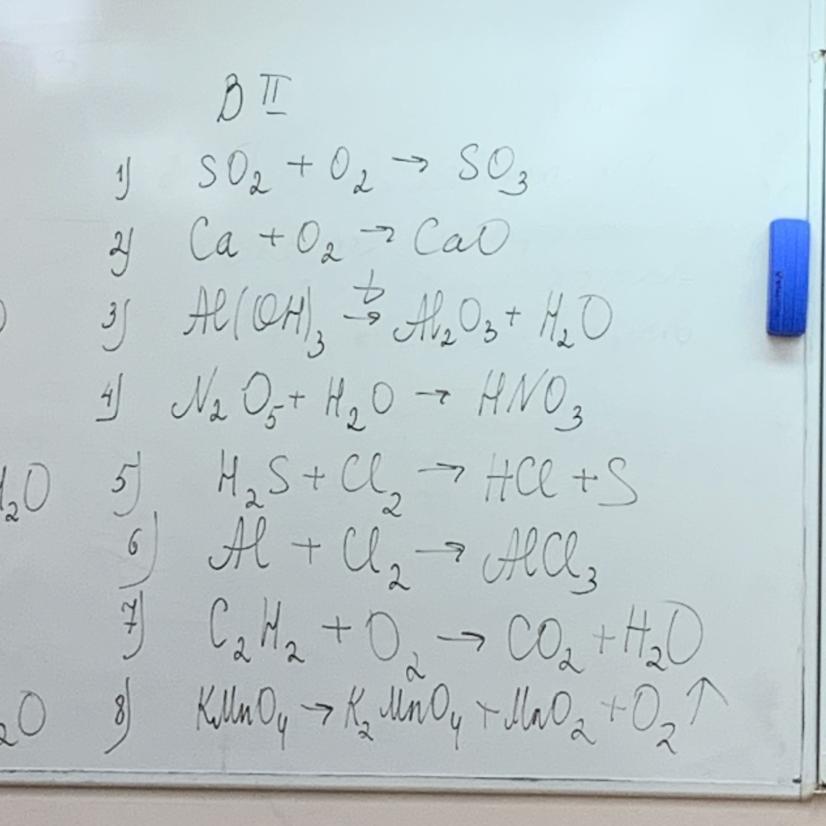 В II
1) SO₂ + O₂ → SO₃
2) Ca + O₂ → CaO
3) Al(OH)₃ →ᵗ Al₂O₃ + H₂O
4) N₂O₅ + H₂O → HNO₃
H₂O 5) H₂S + Cl₂ → HCl + S
6) Al + Cl₂ → AlCl₃
7) C₂H₂ + O₂ → CO₂ + H₂O
₂O 8) KMnO₄ → K₂MnO₄ + MnO₂ + O₂↑